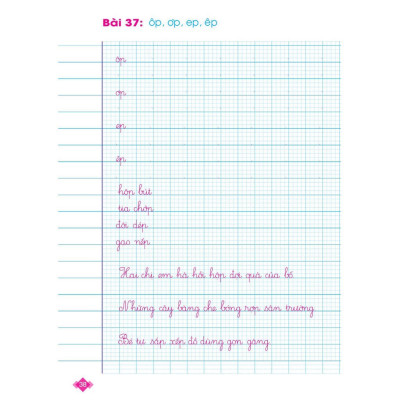 Bài 37: ôp, ơp, ep, êp
ôp
ơp
ep
êp
hộp bút
tia chớp
đôi dép
gạo nếp
Hai chị em hà hồi hộp đợi quà của bố
Những cây bàng che bóng rợp sân trường
Bé tự sắp xếp đồ dùng gọn gàng
36